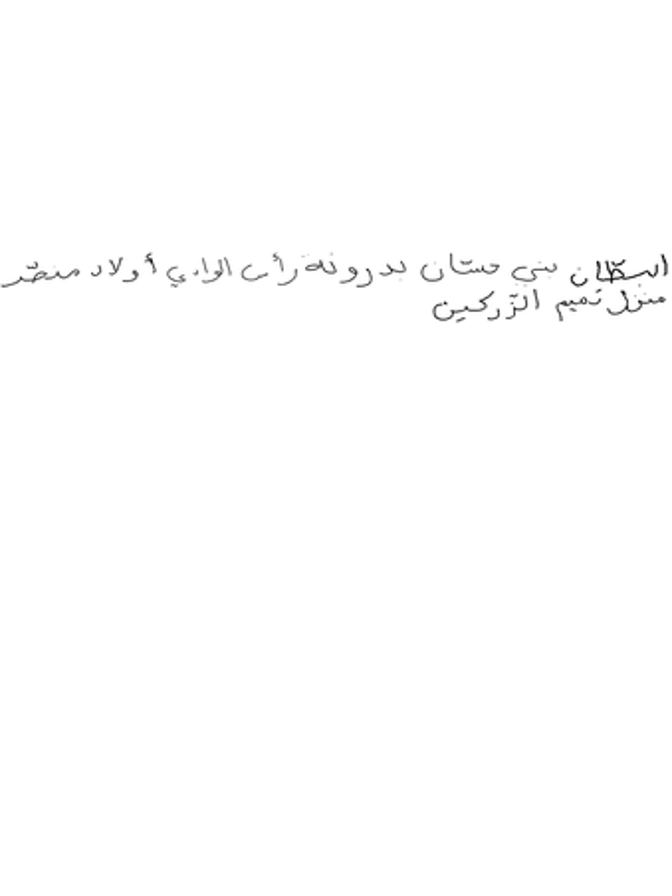 البطّان بني حسّان بدرونة رأس الوادي أولاد منصّر
منزل تميم الزّركين